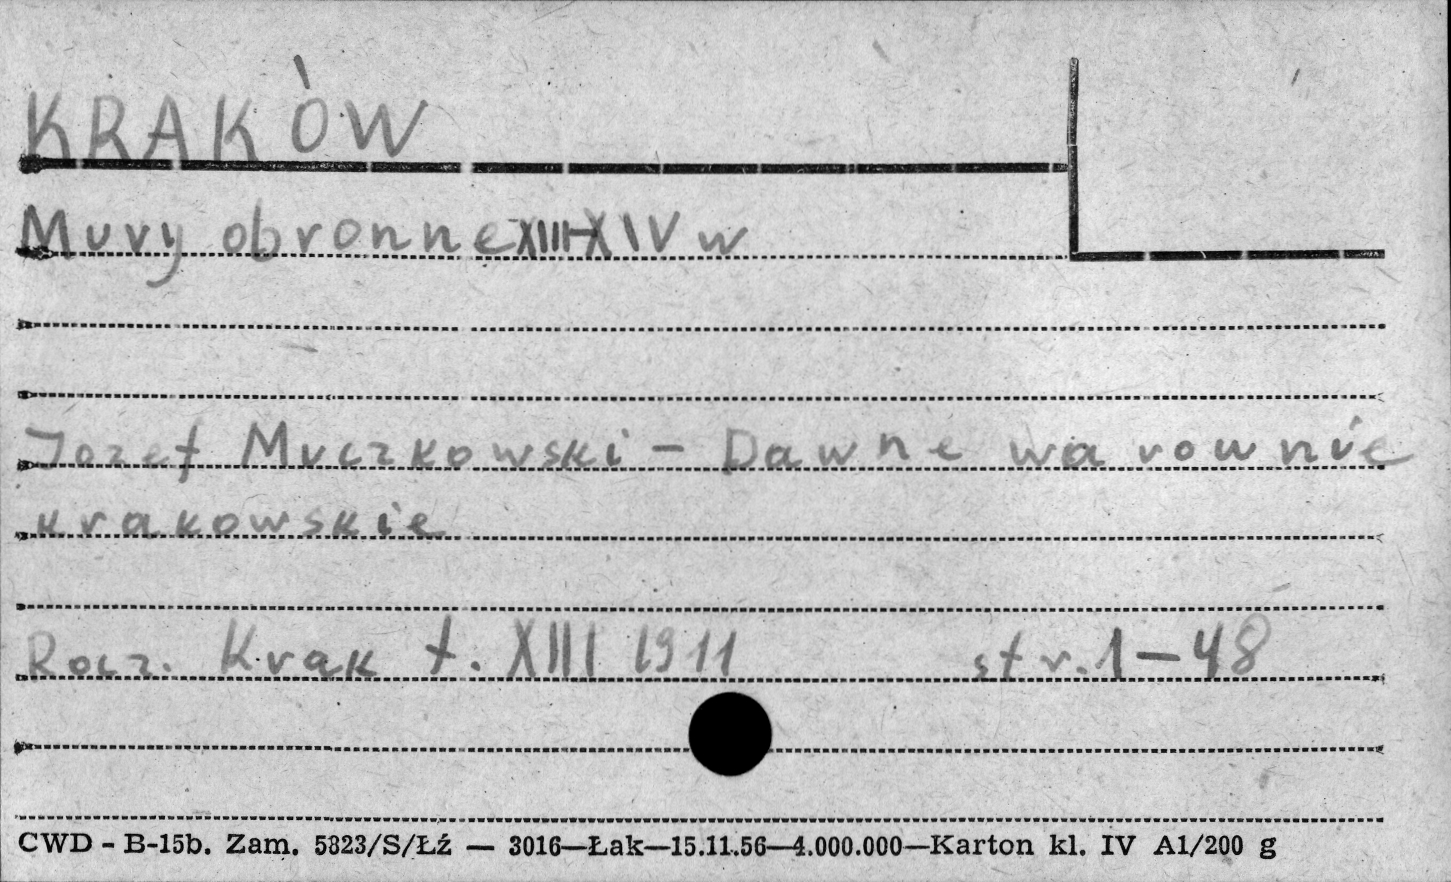 KRAKÓW
Mury obronne XIII-XIV w
Jozef Muczkowski - Dawne warownie
krakowskie
Rocz. Krak t. XIII 1911 str. 1-48
CWD - B-15b. Zam. 5823/S/Łź — 3016—Łak—15.11.56—4.000.000—Karton kl. IV A1/200 g